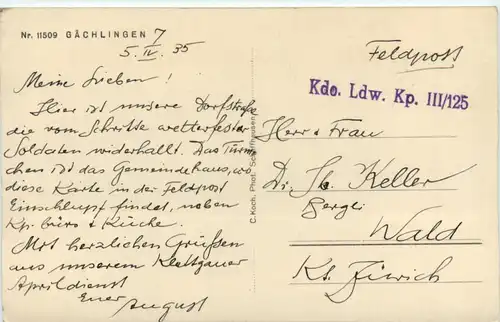 Nr. 11509 GÄCHLINGEN 7
5. IV. 35
Meine Lieben!
Hier ist unsere Dorfstraße
die vom Schritte wetterfester
Soldaten widerhallt. Das Türm-
chen ist das Gemeindehaus, wo
diese Karte in der Feldpost
Einschlupf findet, neben
Kp. büro & Küche.
Mit herzlichen Grüßen
aus unserem Klettgauer
Aprildienst
Euer
August
C. Koch, Phot. Schaffhausen
Feldpost
Kdo. Ldw. Kp. III/125
Herr & Frau
Keller
Bergli
Wald
Kt. Zürich